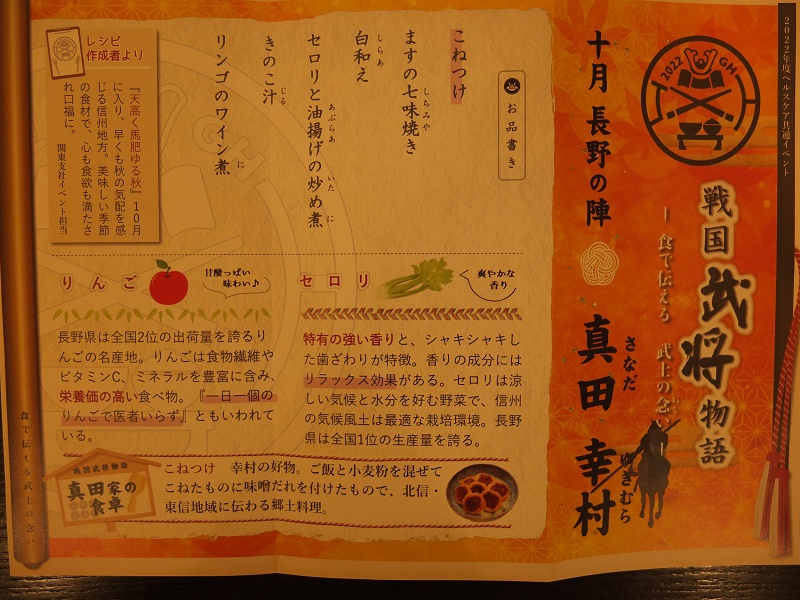 2022年度ヘルスケア共通イベント
2022 GH
戦国武将物語
ー食で伝える 武士の念いー
おも
十月 長野の陣
真田 幸村
さなだ
ゆきむら
お品書き
こねつけ
ますの七味焼き
しちみや
白和え
しらあ
セロリと油揚げの炒め煮
あぶらあ
いた
に
きのこ汁
じる
リンゴのワイン煮
に
レシピ
作成者より
『天高く馬肥ゆる秋』10月
に入り、早くも秋の気配を感
じる信州地方。美味しい季節
の食材で、心も食欲も満たさ
れ口福に。
関東支社イベント担当
セロリ
爽やかな
香り
特有の強い香りと、シャキシャキし
た歯ざわりが特徴。香りの成分には
リラックス効果がある。セロリは涼
しい気候と水分を好む野菜で、信州
の気候風土は最適な栽培環境。長野
県は全国1位の生産量を誇る。
りんご
甘酸っぱい
味わい♪
長野県は全国2位の出荷量を誇るり
んごの名産地。りんごは食物繊維や
ビタミンC、ミネラルを豊富に含み、
栄養価の高い食べ物。『一日一個の
りんごで医者いらず』ともいわれて
いる。
戦国武将物語
真田家の
食卓
こねつけ 幸村の好物。ご飯と小麦粉を混ぜて
こねたものに味噌だれを付けたもので、北信・
東信地域に伝わる郷土料理。
食で伝える武士の念い